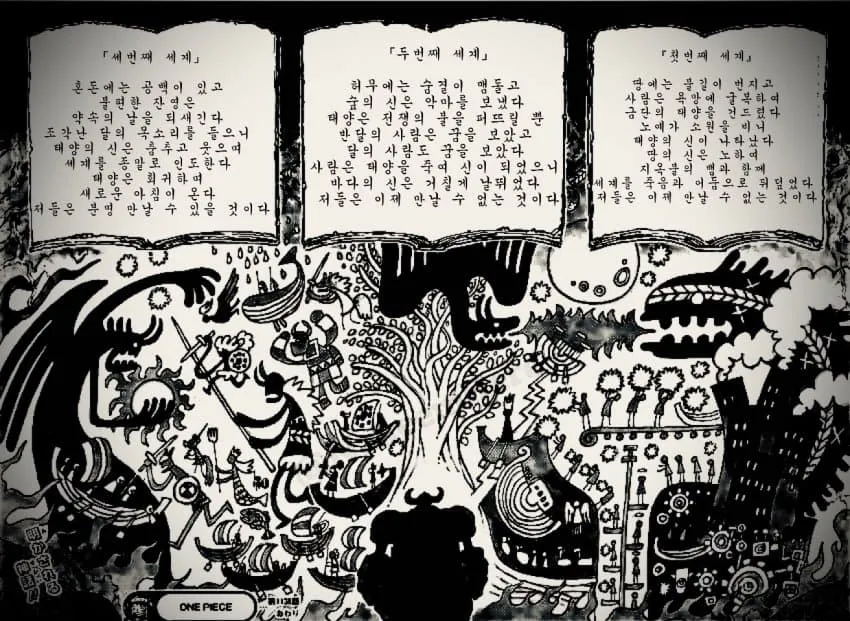 『첫번째 세계』
땅에는 불길이 번지고
사람은 욕망에 굴복하여
금단의 태양을 건드렸다
노예가 소원을 비니
태양의 신이 나타났다
땅의 신은 노하여
지옥불의 뱀과 함께
세계를 죽음과 어둠으로 뒤덮었다
저들은 이제 만날 수 없는 것이다
『두번째 세계』
허무에는 숨결이 맴돌고
숲의 신은 악마를 보냈다
태양은 전쟁의 불을 퍼뜨릴 뿐
반달의 사람은 꿈을 보았고
달의 사람도 꿈을 보았다
사람은 태양을 죽여 신이 되었으니
바다의 신은 거칠게 날뛰었다
저들은 이제 만날 수 없는 것이다
『세번째 세계』
혼돈에는 공백이 있고
불편한 잔영은
약속의 날을 되새긴다
조각난 달의 목소리를 들으니
태양의 신은 춤추고 웃으며
세계를 종말로 인도한다
태양은 회귀하여
새로운 아침이 온다
저들은 분명 만날 수 있을 것이다
明かされる
神話
ONE PIECE
おわり